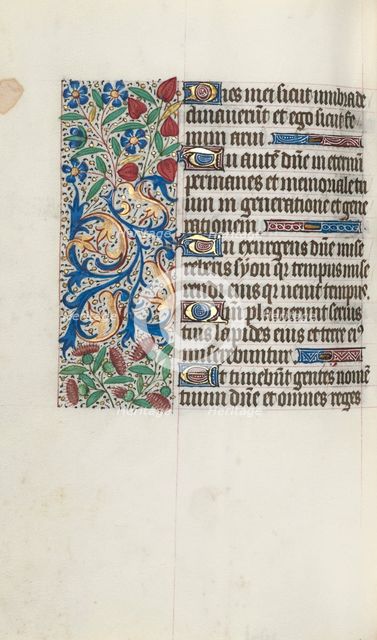 Dies mei sicut umbra de
clinauerunt et ego sicut fe
num arui
Tu autē dn̄e in eternū
permanes et memoriale tu
um in generatione et gene
rationem
Tu exurgens dn̄e mise
reberis syon qr tempus mise
rendi eius qr uenit tempus
Qm̄ placuerunt seruis
tuis lapides eius et terre eiꝰ
miserebuntur
Et timebūt gentes nomē
tuum dn̄e et omnes reges
Heritage
Heritage
Heritage